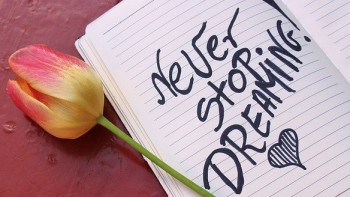 NeveR
STOP
DREAMING!